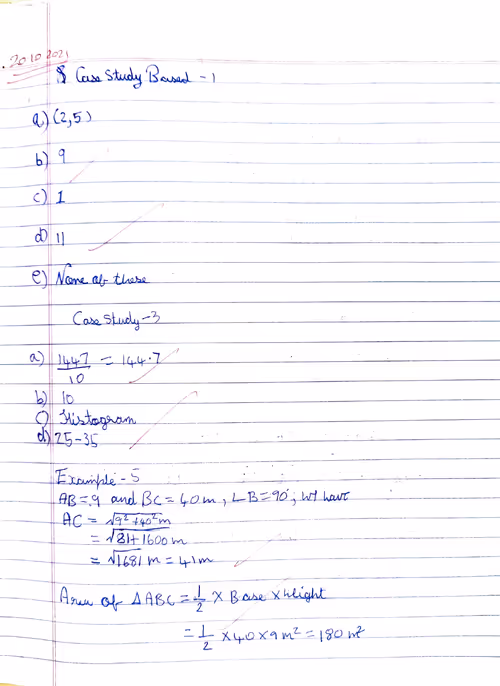 20.10.2021
Case Study Based - 1
a) (2,5)
b) 9
c) 1
d) 11
e) None of these
Case Study-3
a) 1447/10 = 144.7
b) 10
c) Histogram
d) 25-35
Example - 5
AB = 9 and BC = 40m, ∠B = 90°, we have
AC = √9²+40² m
= √81+1600 m
= √1681 m = 41m
Area of △ABC = 1/2 × Base × Hight
= 1/2 × 40 × 9 m² = 180 m²